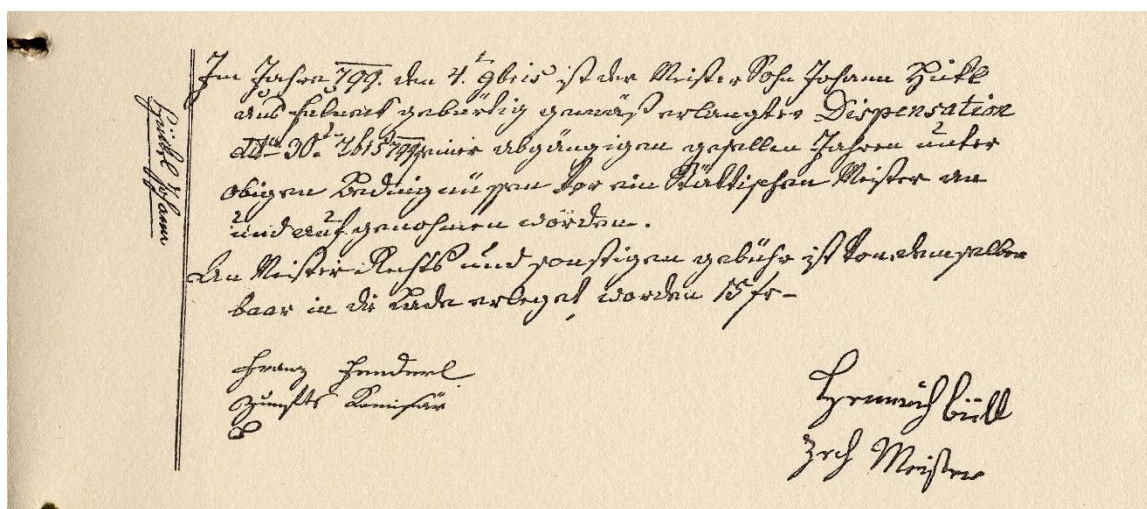 Im Jahre 799. den 4.t 9bris ist der Meister Sohn Johann
aus gebürtig gemäß erlangter Dispensation
30. 7bris 799 seiner abgängigen gesellen Jahren unter
obigen Bedingnüssen vor ein Stättischen Meister an
und auf genohmen worden.
An Meister Rechts und sonstigen gebühr ist von demselben
baar in die Lade erleget worden 15 fr-
Johann
Franz Henderl
Zunfts Komisär
Zech Meister